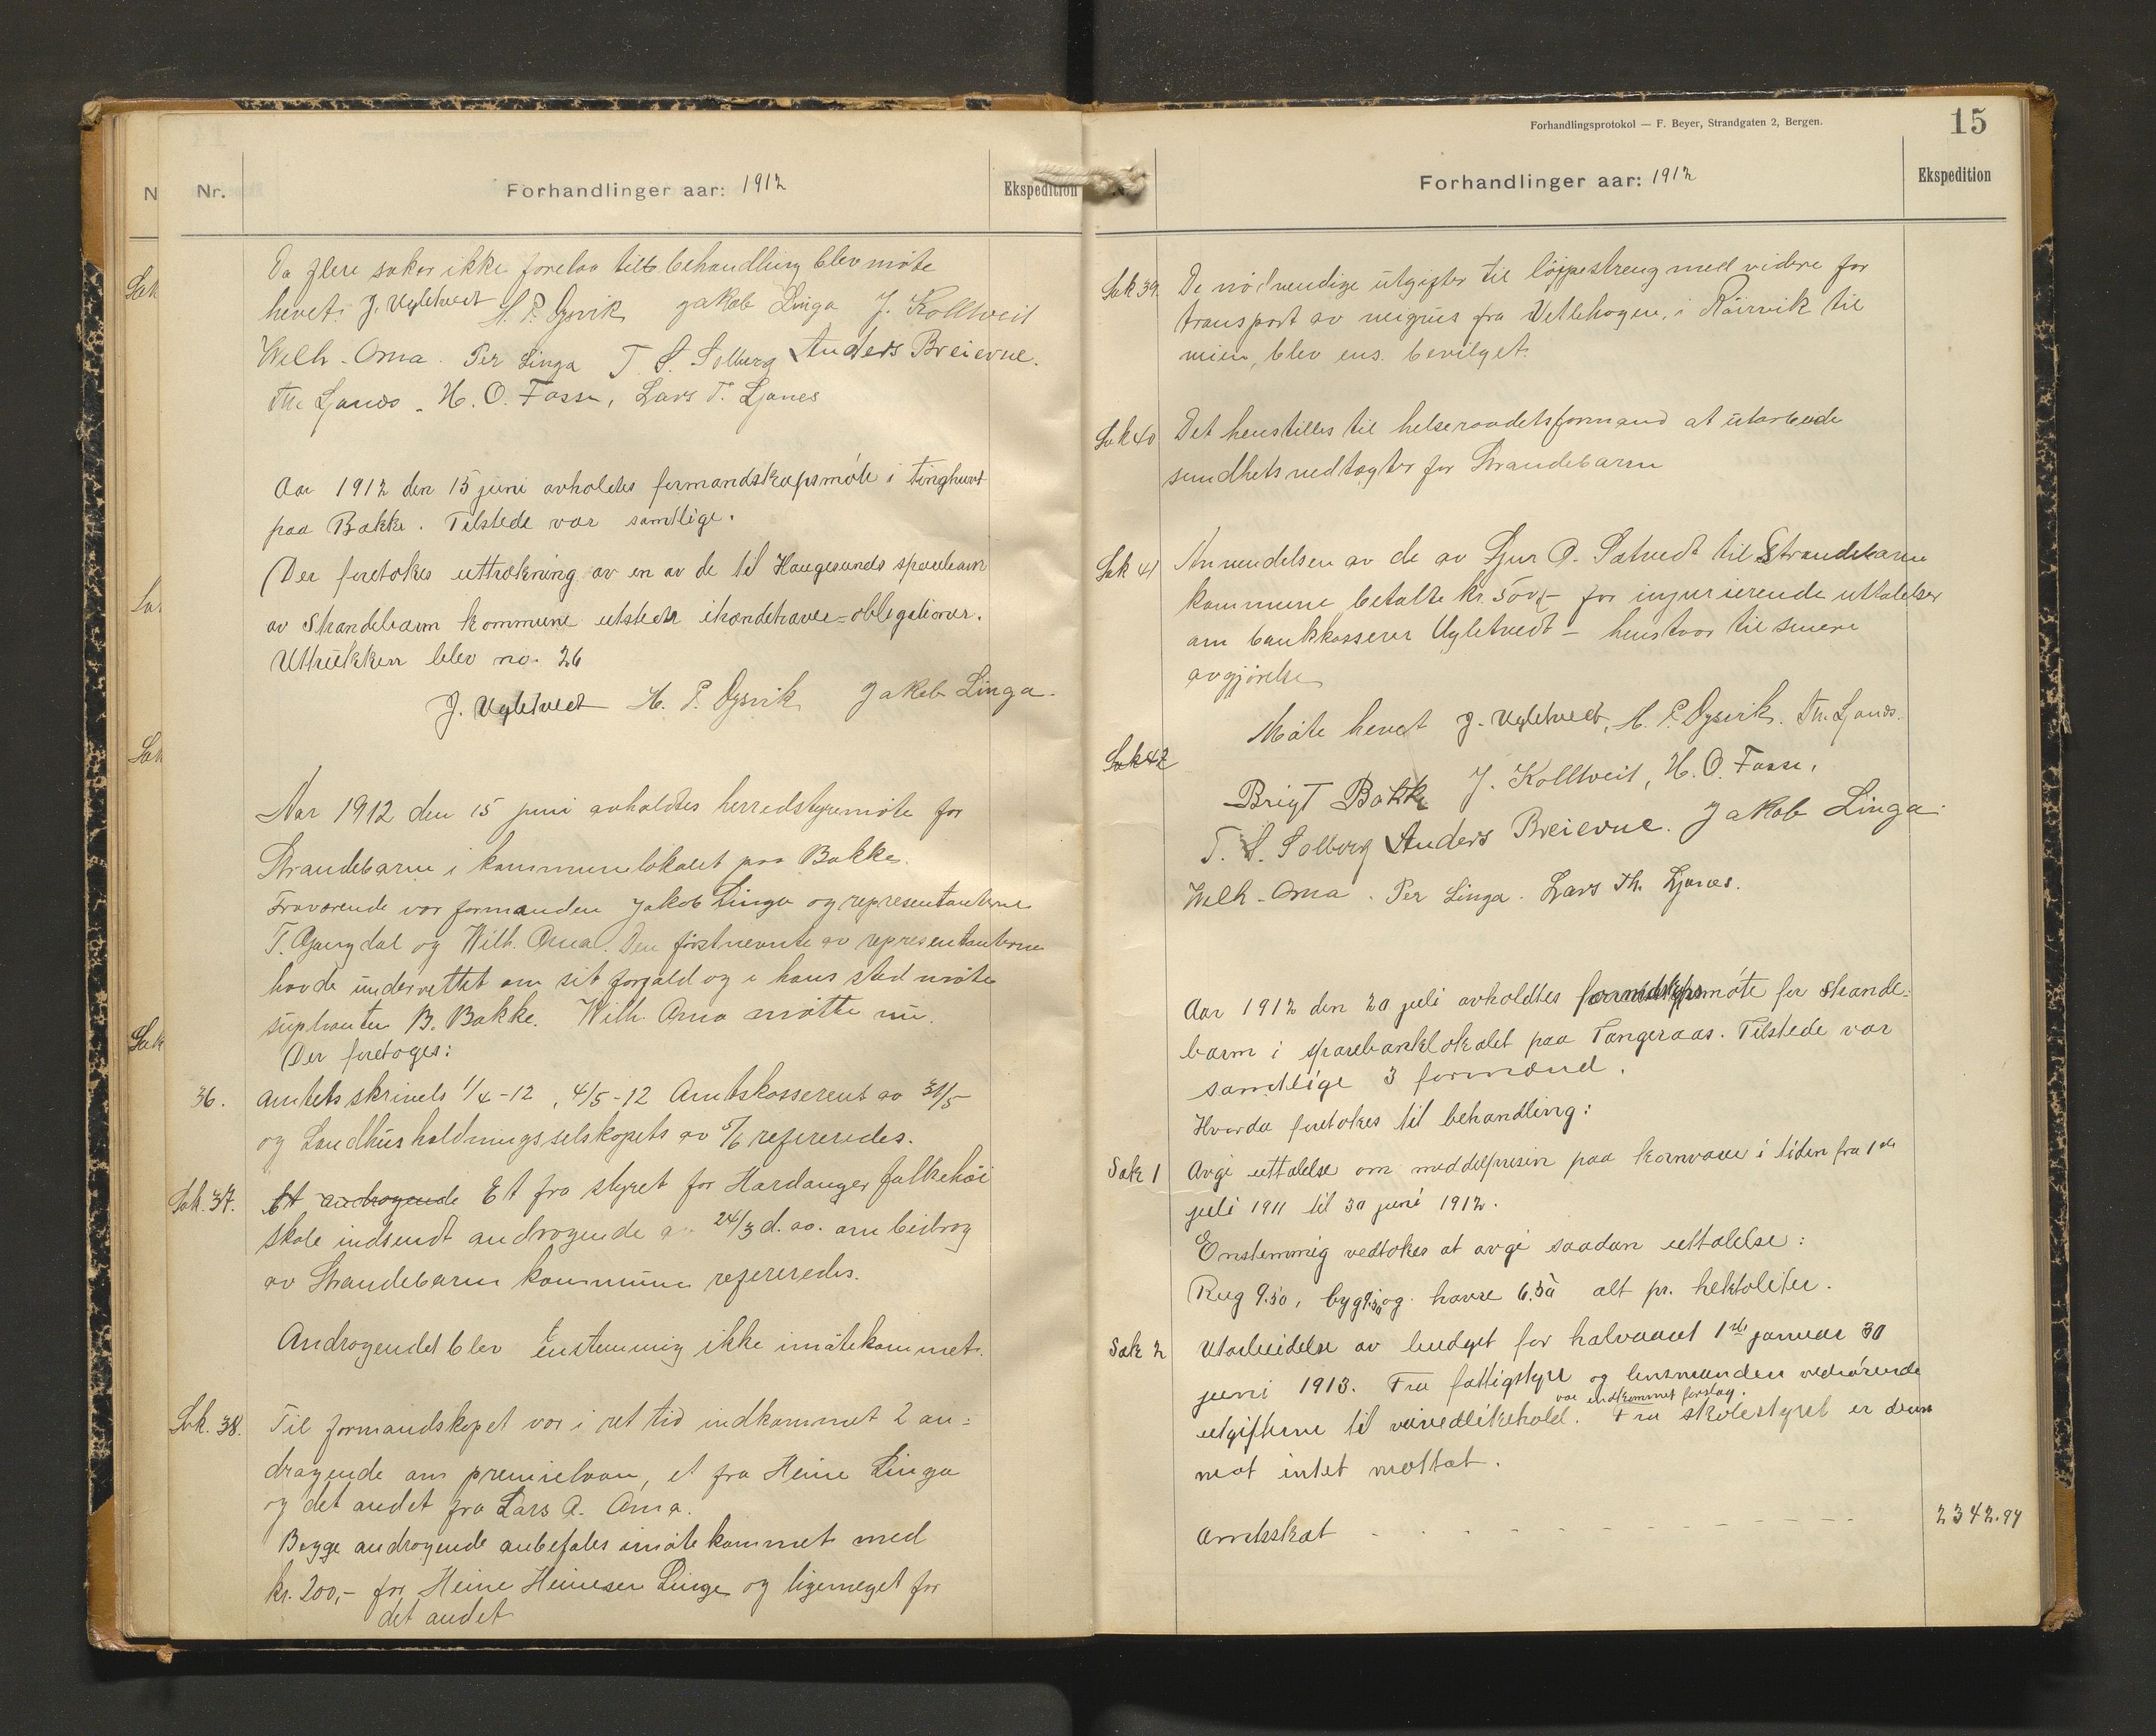 Nr.
Forhandlinger aar: 1912
Ekspedition
Da flere saker ikke forelaa til behandling blev møte
hevet. J. Ugletveit H. P. Oysvik Jakob Linga J. Kolltveit
Wilh. Oma. Per Linga T. S. Solberg Anders Breievne.
Th. Ljones. H. O. Fosse, Lars T. Ljones
Aar 1912 den 15 juni avholdtes formandskapsmøte i tinghuset
paa Bakke. Tilstede var samtlige.
Der foretokes uttrækning av en av de til Haugesunds sparebank
av Strandebarm kommune utstedte ihændehaver-obligationer.
Uttrukken blev no. 26
J. Ugletveit H. P. Oysvik Jakob Linga.
Aar 1912 den 15 juni avholdtes herredstyremøte for
Strandebarm i kommunelokalet paa Bakke.
Fraværende var formanden Jakob Linga og representanterne
T. Gangdal og Wilh. Oma. Den førstnevnte av representanterne
havde underrettet om sit forfald og i hans sted møtte
suplianten B. Bakke. Wilh. Oma møtte nu.
Der foretoges:
36. Amtets skrivels 1/4-12, 4/5-12 Amtskasserens av 31/5
og Landhusholdningsselskapets av 5/6 refereredes.
Sak. 37. Et andragende Et fra styret for Hardanger folkehøi
skole indsendt andragende av 24/3 d. aa. om bidrag
av Strandebarm kommune refereredes.
Andragendet blev enstemmig ikke imøtekommet.
Sak. 38. Til formandskapet var i ret tid indkommet 2 an=
dragende om premielaan, et fra Heine Linga
og det andet fra Lars A. Oma.
Begge andragende anbefales imøtekommet med
kr. 200,- for Heine Heinesen Linga og ligemeget for
det andet
Forhandlingsprotokol — F. Beyer, Strandgaten 2, Bergen.
15
Forhandlinger aar: 1912
Ekspedition
Sak 39. De nødvendige utgifter til løipestreng med videre for
transport av fra Vetlehogen, i Røirvik til
blev ens. bevilget.
Sak 40 Det henstilles til helseraadets formand at utarbeide
sundhetsvedtægter for Strandebarm
Sak 41 Anvendelsen av de av Sjur O. Sætvedt til Strandebarm
kommune betalte kr. 500,- for injurierende uttalelser
om bankkasserer Ugletvedt - henstaar til senere
avgjørelse
Møte hevet J. Ugletveit, H. P. Oysvik. Th. Ljones.
Sak 42
Brigt Bakke J. Kolltveit, H. O. Fosse,
T. S. Solberg Anders Breievne. Jakob Linga.
Wilh. Oma. Per Linga. Lars Th. Ljones.
Aar 1912 den 20 juli avholdtes formandskapsmøte for Strande=
barm i sparebanklokalet paa Tangeraas. Tilstede var
samtlige 3 formænd.
Hvorda foretokes til behandling:
Sak 1 Avgi uttalelse om middelprisen paa kornvarer i tiden fra 1ste
juli 1911 til 30 juni 1912.
Enstemmig vedtokes at avgi saadan uttalelse:
Rug 9.50, byg 9.50 og havre 6.50 alt pr. hektoliter.
Sak 2 Utarbeidelse av budget for halvaaret 1ste januar 30
juni 1913. Fra fattigstyre og lensmanden vedrørende
var indkommet forslag.
utgifterne til veivedlikehold. Fra skolestyret er derim
mot intet mottat.
Amtsskat - - - - - - - - - - - 2342.94
Sak
Sak
Sak
Sak